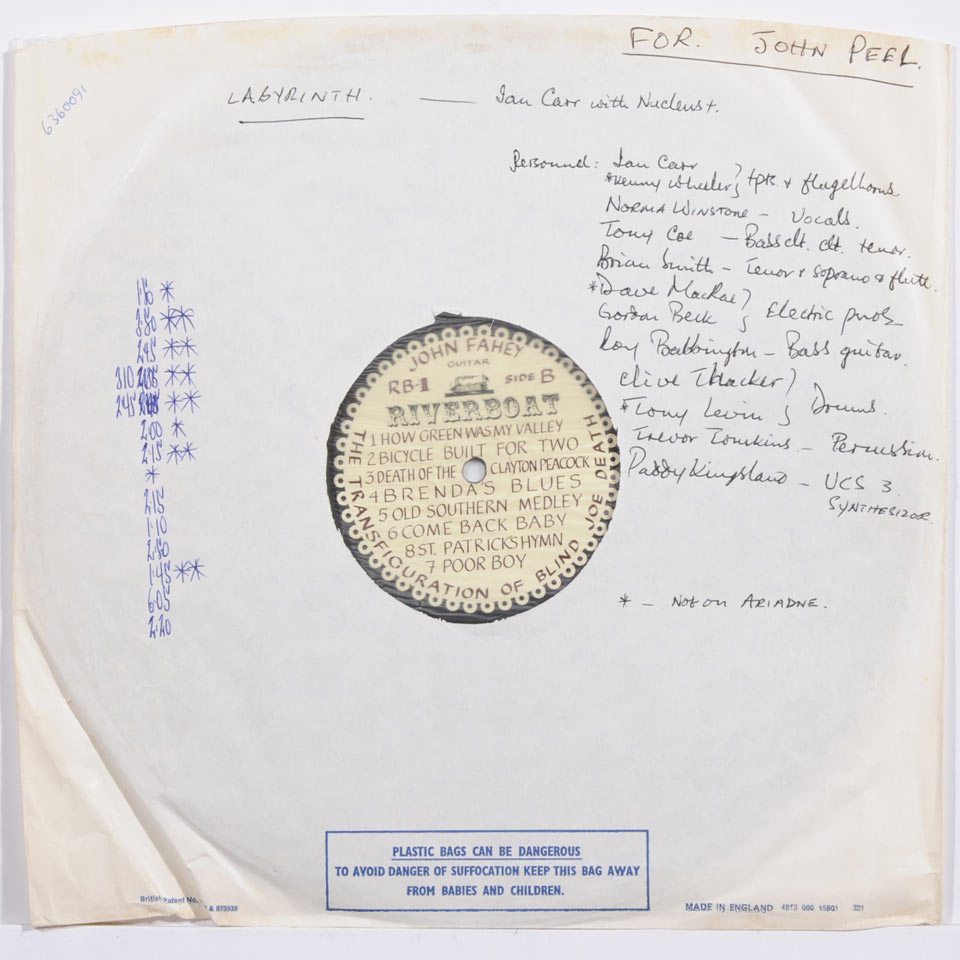 FOR. JOHN PEEL.
6360091
LABYRINTH. — Ian Carr with Nucleus +.
Personnel: Ian Carr
*Kenny Wheeler } tpts. + flugelhorns
NORMA WINSTONE – Vocals.
Tony Coe – Bass clt. clt. tenor.
Brian Smith – Tenor + soprano + flute.
*Dave MacRae }
Gordon Beck } Electric pnos
Roy Babbington – Bass guitar.
Clive Thacker }
*Tony Levin } Drums.
Trevor Tomkins – Percussion.
Paddy Kingsland – UCS 3.
SYNTHESIZOR.
* – Not on ARIADNE.
*
3.50 **
2.45 **
310 **
245 **
2.00 *
2.15 **
*
2.15
1.10
2.50
1.45 **
6.05
2.20
JOHN FAHEY
GUITAR
RB-1 SIDE B
RIVERBOAT
1 HOW GREEN WAS MY VALLEY
2 BICYCLE BUILT FOR TWO
3 DEATH OF THE CLAYTON PEACOCK
4 BRENDA'S BLUES
5 OLD SOUTHERN MEDLEY
6 COME BACK BABY
8 ST. PATRICKS HYMN
7 POOR BOY
THE TRANSFIGURATION OF BLIND JOE DEATH
PLASTIC BAGS CAN BE DANGEROUS
TO AVOID DANGER OF SUFFOCATION KEEP THIS BAG AWAY
FROM BABIES AND CHILDREN.
British Patent No. & 973939
MADE IN ENGLAND 4913 000 15801 321